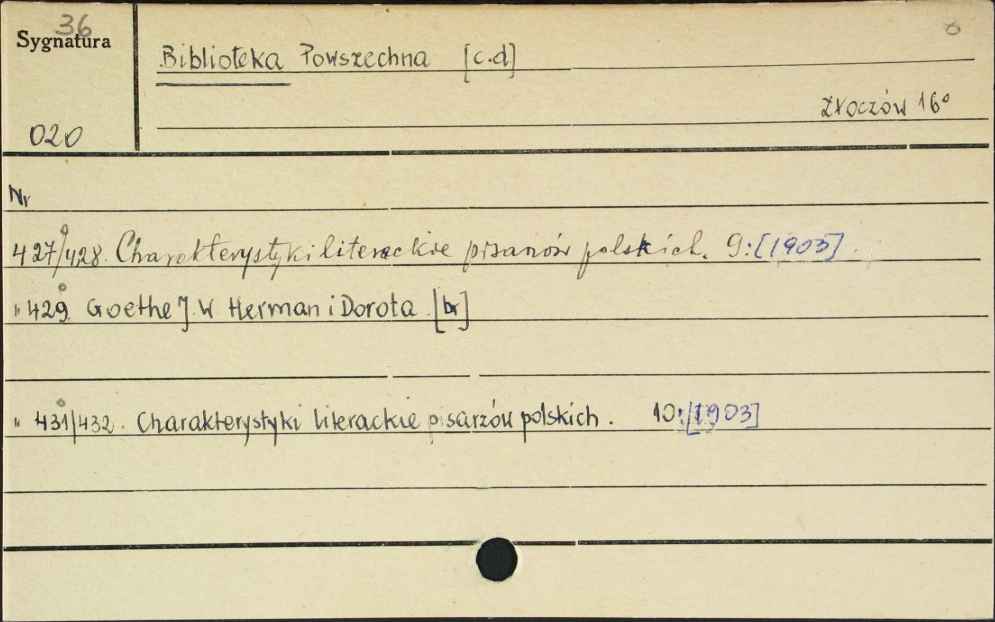 36
Sygnatura
020
Biblioteka Powszechna [c.d]
Złoczów 16°
Nr
427/428. Charakterystyki literackie pisarzów polskich. 9:[1903].
" 429 Goethe J. W Herman i Dorota [br]
" 431/432. Charakterystyki literackie pisarzów polskich. 10:[1903]